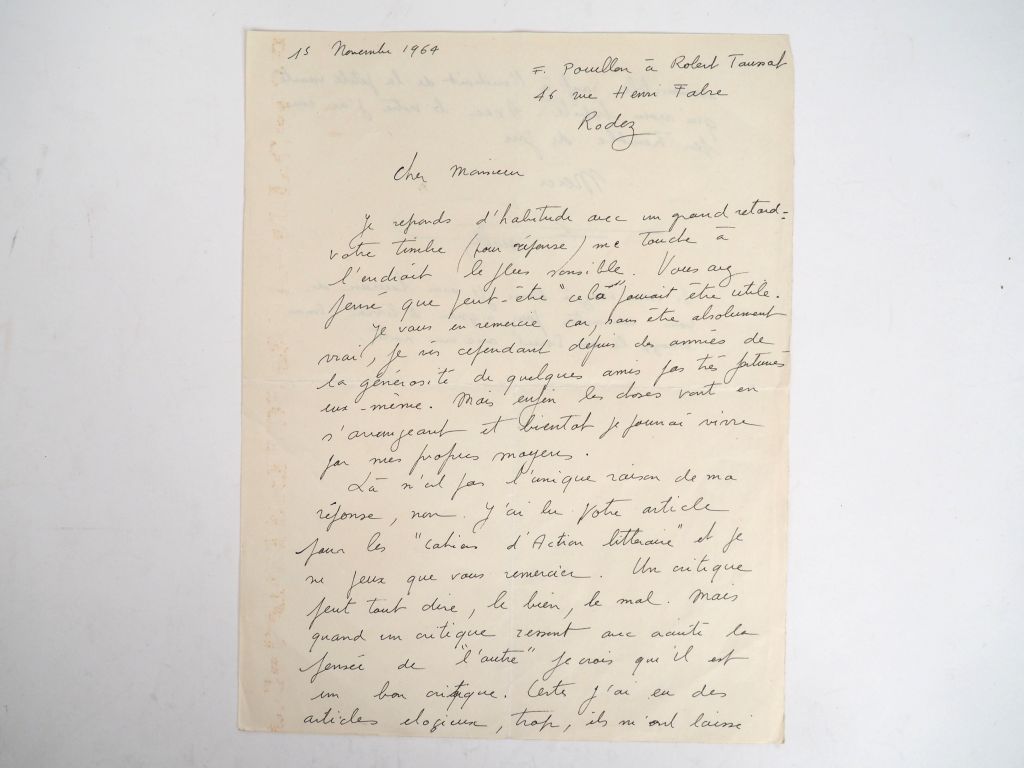 15 Novembre 1964
F. Pouillon à Robert Taussat
46 rue Henri Fabre
Rodez
Cher Monsieur
Je reponds d'habitude avec un grand retard -
votre timbre (pour réponse) me touche à
l'endroit le plus sensible. Vous avez
pensé que peut-être "celà" pouvait être utile.
Je vous en remercie car, sans être absolument
vrai, je vis cependant depuis des années de
la générosité de quelques amis pas très fortunés
eux-même. Mais enfin les choses vont en
s'arrangeant et bientot je pourrai vivre
par mes propres moyens.
Là n'est pas l'unique raison de ma
réponse, non. J'ai lu votre article
pour les "Cahiers d'Action littéraire" et je
ne peux que vous remercier. Un critique
peut tout dire, le bien, le mal. Mais
quand un critique ressent avec acuité la
pensée de "l'autre" je crois qu'il est
un bon critique. Certes j'ai eu des
articles elogieux, trop, ils m'ont laissé